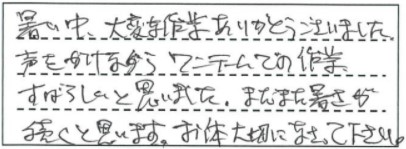 暑い中、大変な作業ありがとうございました。
声をかけながら ワンチームでの作業、
すばらしいと思いました。まだまだ暑さが
続くと思います。お体大切になさって下さい。